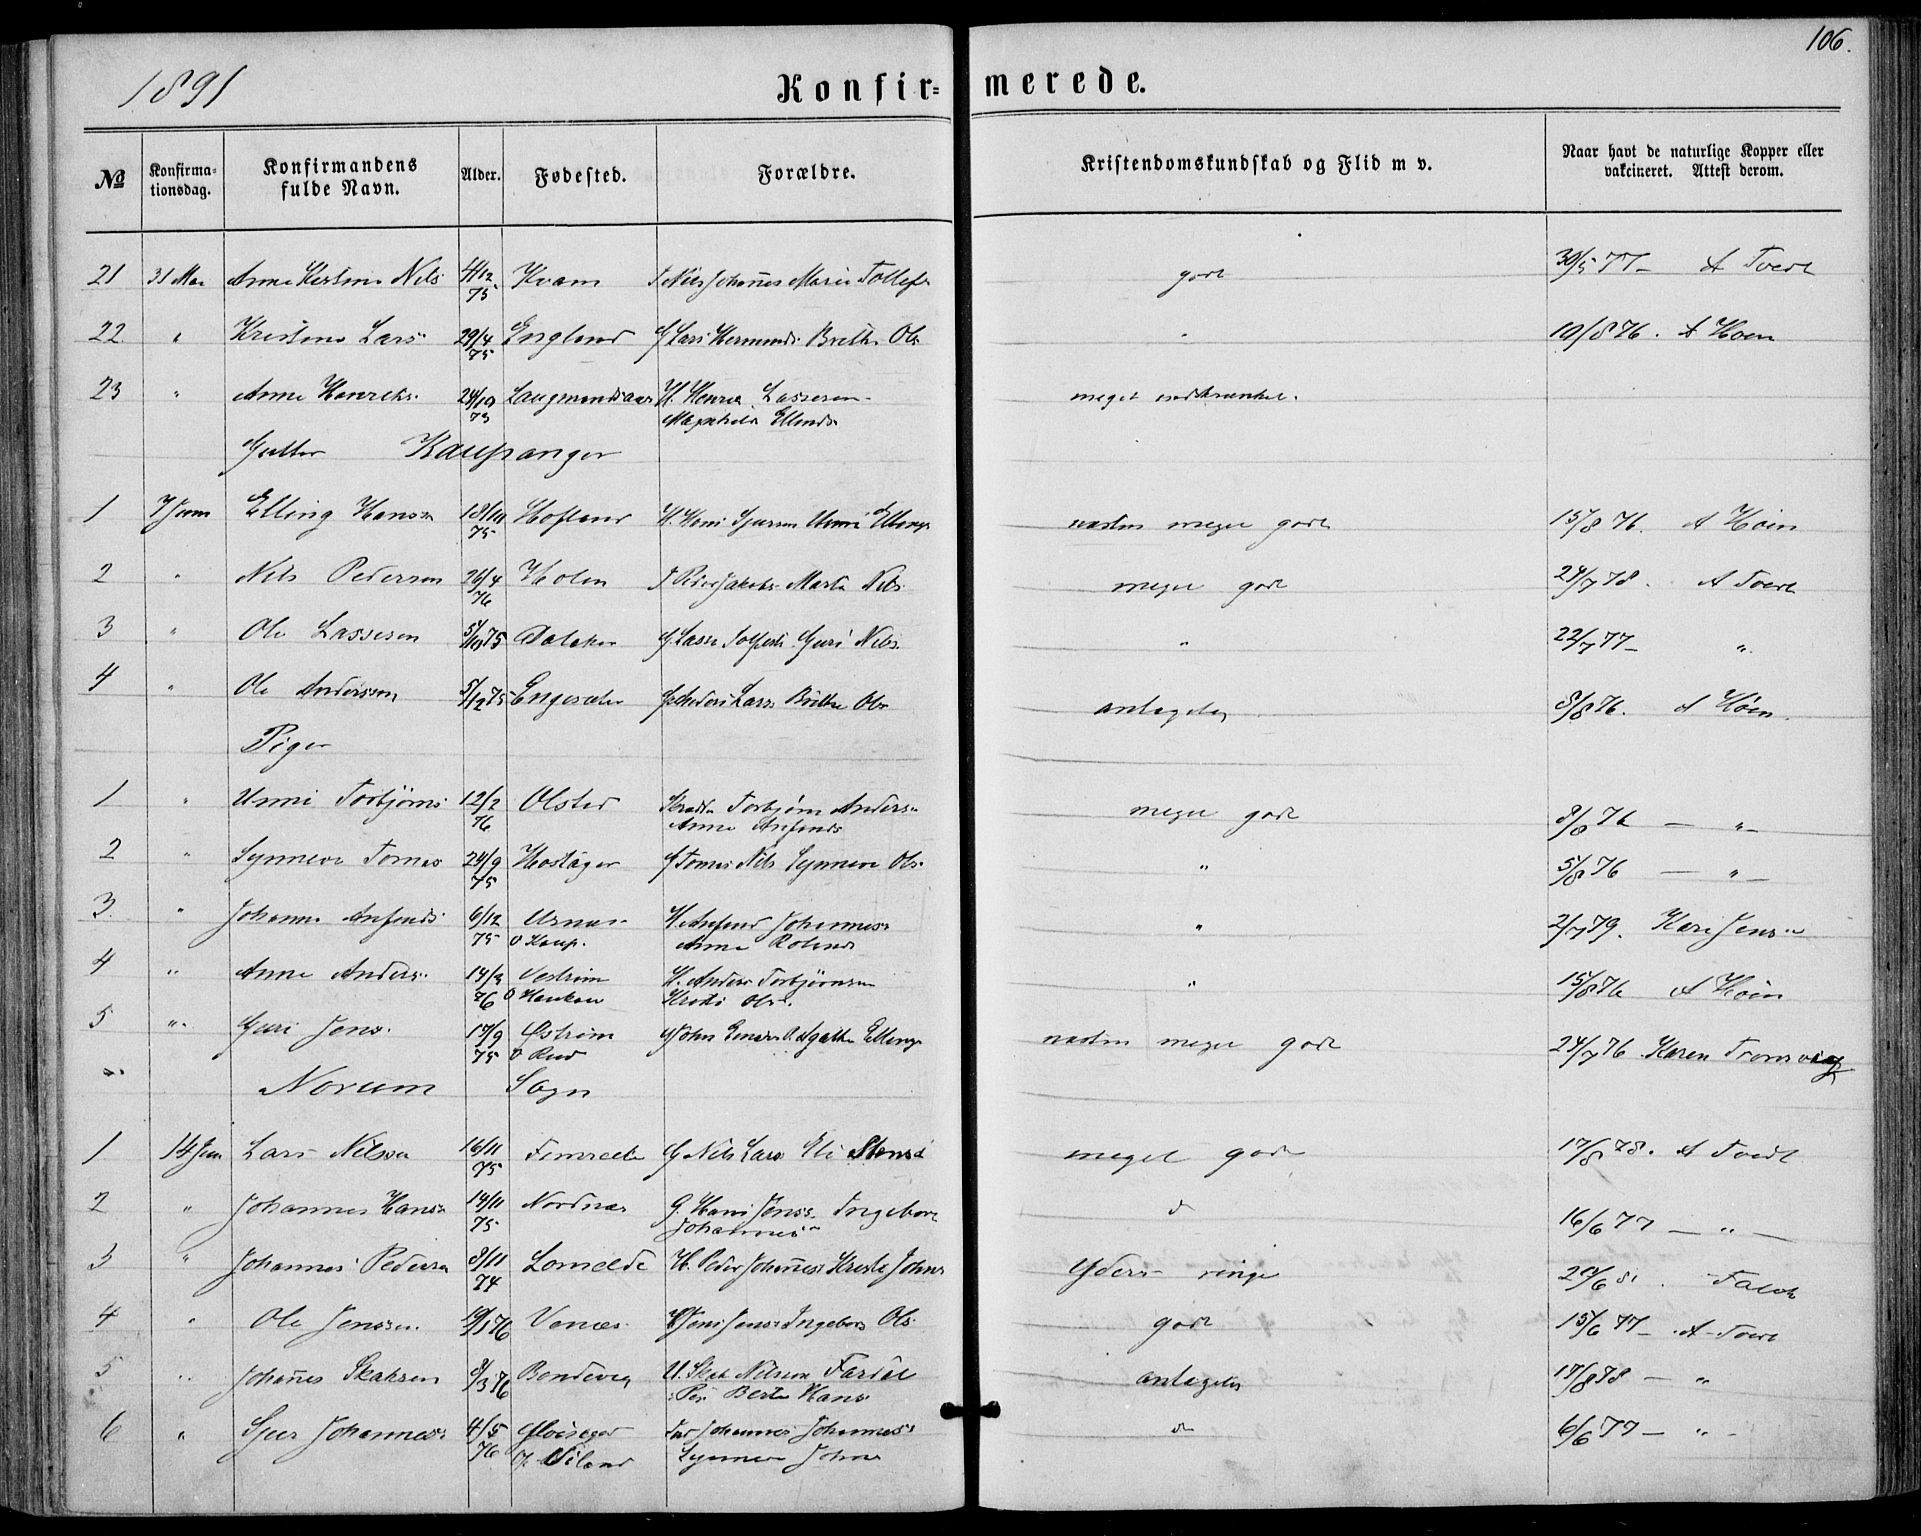 106.
1891
Konfir= merede.
№ Konfirma-tionsdag. Konfirmandens fulde Navn. Alder. Fødested. Forældre. Kristendomskundskab og Flid m v. Naar havt de naturlige Kopper eller vakcineret. Attest derom.
21 31 Mai Anne Kirstine Nils 4/12 75 Kvam Nils Johannes Marie Tollefs godt 30/5 77 - A Tvedt
22 " Kristine Lars 29/4 75 England G Lars Hermunds Brithe Ols " 19/8 76. A Hoen
23 " Anne Henriks 24/10 73 H. Henrik Lassesen
Ellends meget indskrænket.
Gutter Kaupanger
1 7 Juni Elling Hanss 18/10 75 Hofland H. Hans Sjursen Unni Ellings næsten meget godt 15/8 76. A Höen
2 " Nils Pedersen 26/4 76 Holen Peder Jakobs Marta Nils meget godt 24/7 78. A Tvedt
3 " Ole Lassesen 5/10 75 Dalaker G Lasse Guri Nils " 22/7 77 - "
4 " Ole Anderssen 5/12 75 Engesæter G Anders Lars Brithe Ols antagelig 5/8 76. A Höen.
Piger
1 " Unni Torbjørns 12/2 76 Olstad Torbjørn Anders
Anne Anfinds meget godt 8/8 76 — " —
2 " Synneve Tomas 24/9 75 Hostager G Tomas Nils Synneve Ols " 5/8 76 — " —
3. " Johanna Anfinds 6/12 75 Urnæs
Kaup. H. Anfind Johanness
Anne " 2/7 79. Kari Jens
4 " Anne Anders 14/3 76 Vestrim
Haukaas H. Anders Torbjørnsen
Kristi Ols " 15/8 76 A Höen
5 " Guri Jens 17/9 75 Østrim
Agathe Ellings næsten meget godt 24/7 76. Karen Tromsvig
" Norum Sogn
1 14 Jun Lars Nilsen 16/11 75 Fimreite G Nils Lars Eli Stens meget godt 17/8 78. A Tvedt
2 " Johannes Hanss 14/11 75 Nordnæs G. Hans Jenss Ingebor
Johanness d 16/6 77 — " —
3 " Johannes Pedersen 8/11 74 Lomelde H. Peder Johannes Kristi Johns Yderst ringe 29/6 81. Falch
4 " Ole Jenssen 19/1 76 Venæs Jens Jens Ingebor Ols godt 15/6 77 - A Tvedt
5 " Johannes Skaksen 8/3 76 Bondevig U. Skak Nilsen Fardal
Pi. Berta Hans antagelig 17/8 78 — "
6 " Sjur Johanness 4/5 76
Niland Johannes Johanness
Synneve Johns do 6/6 77 — " -